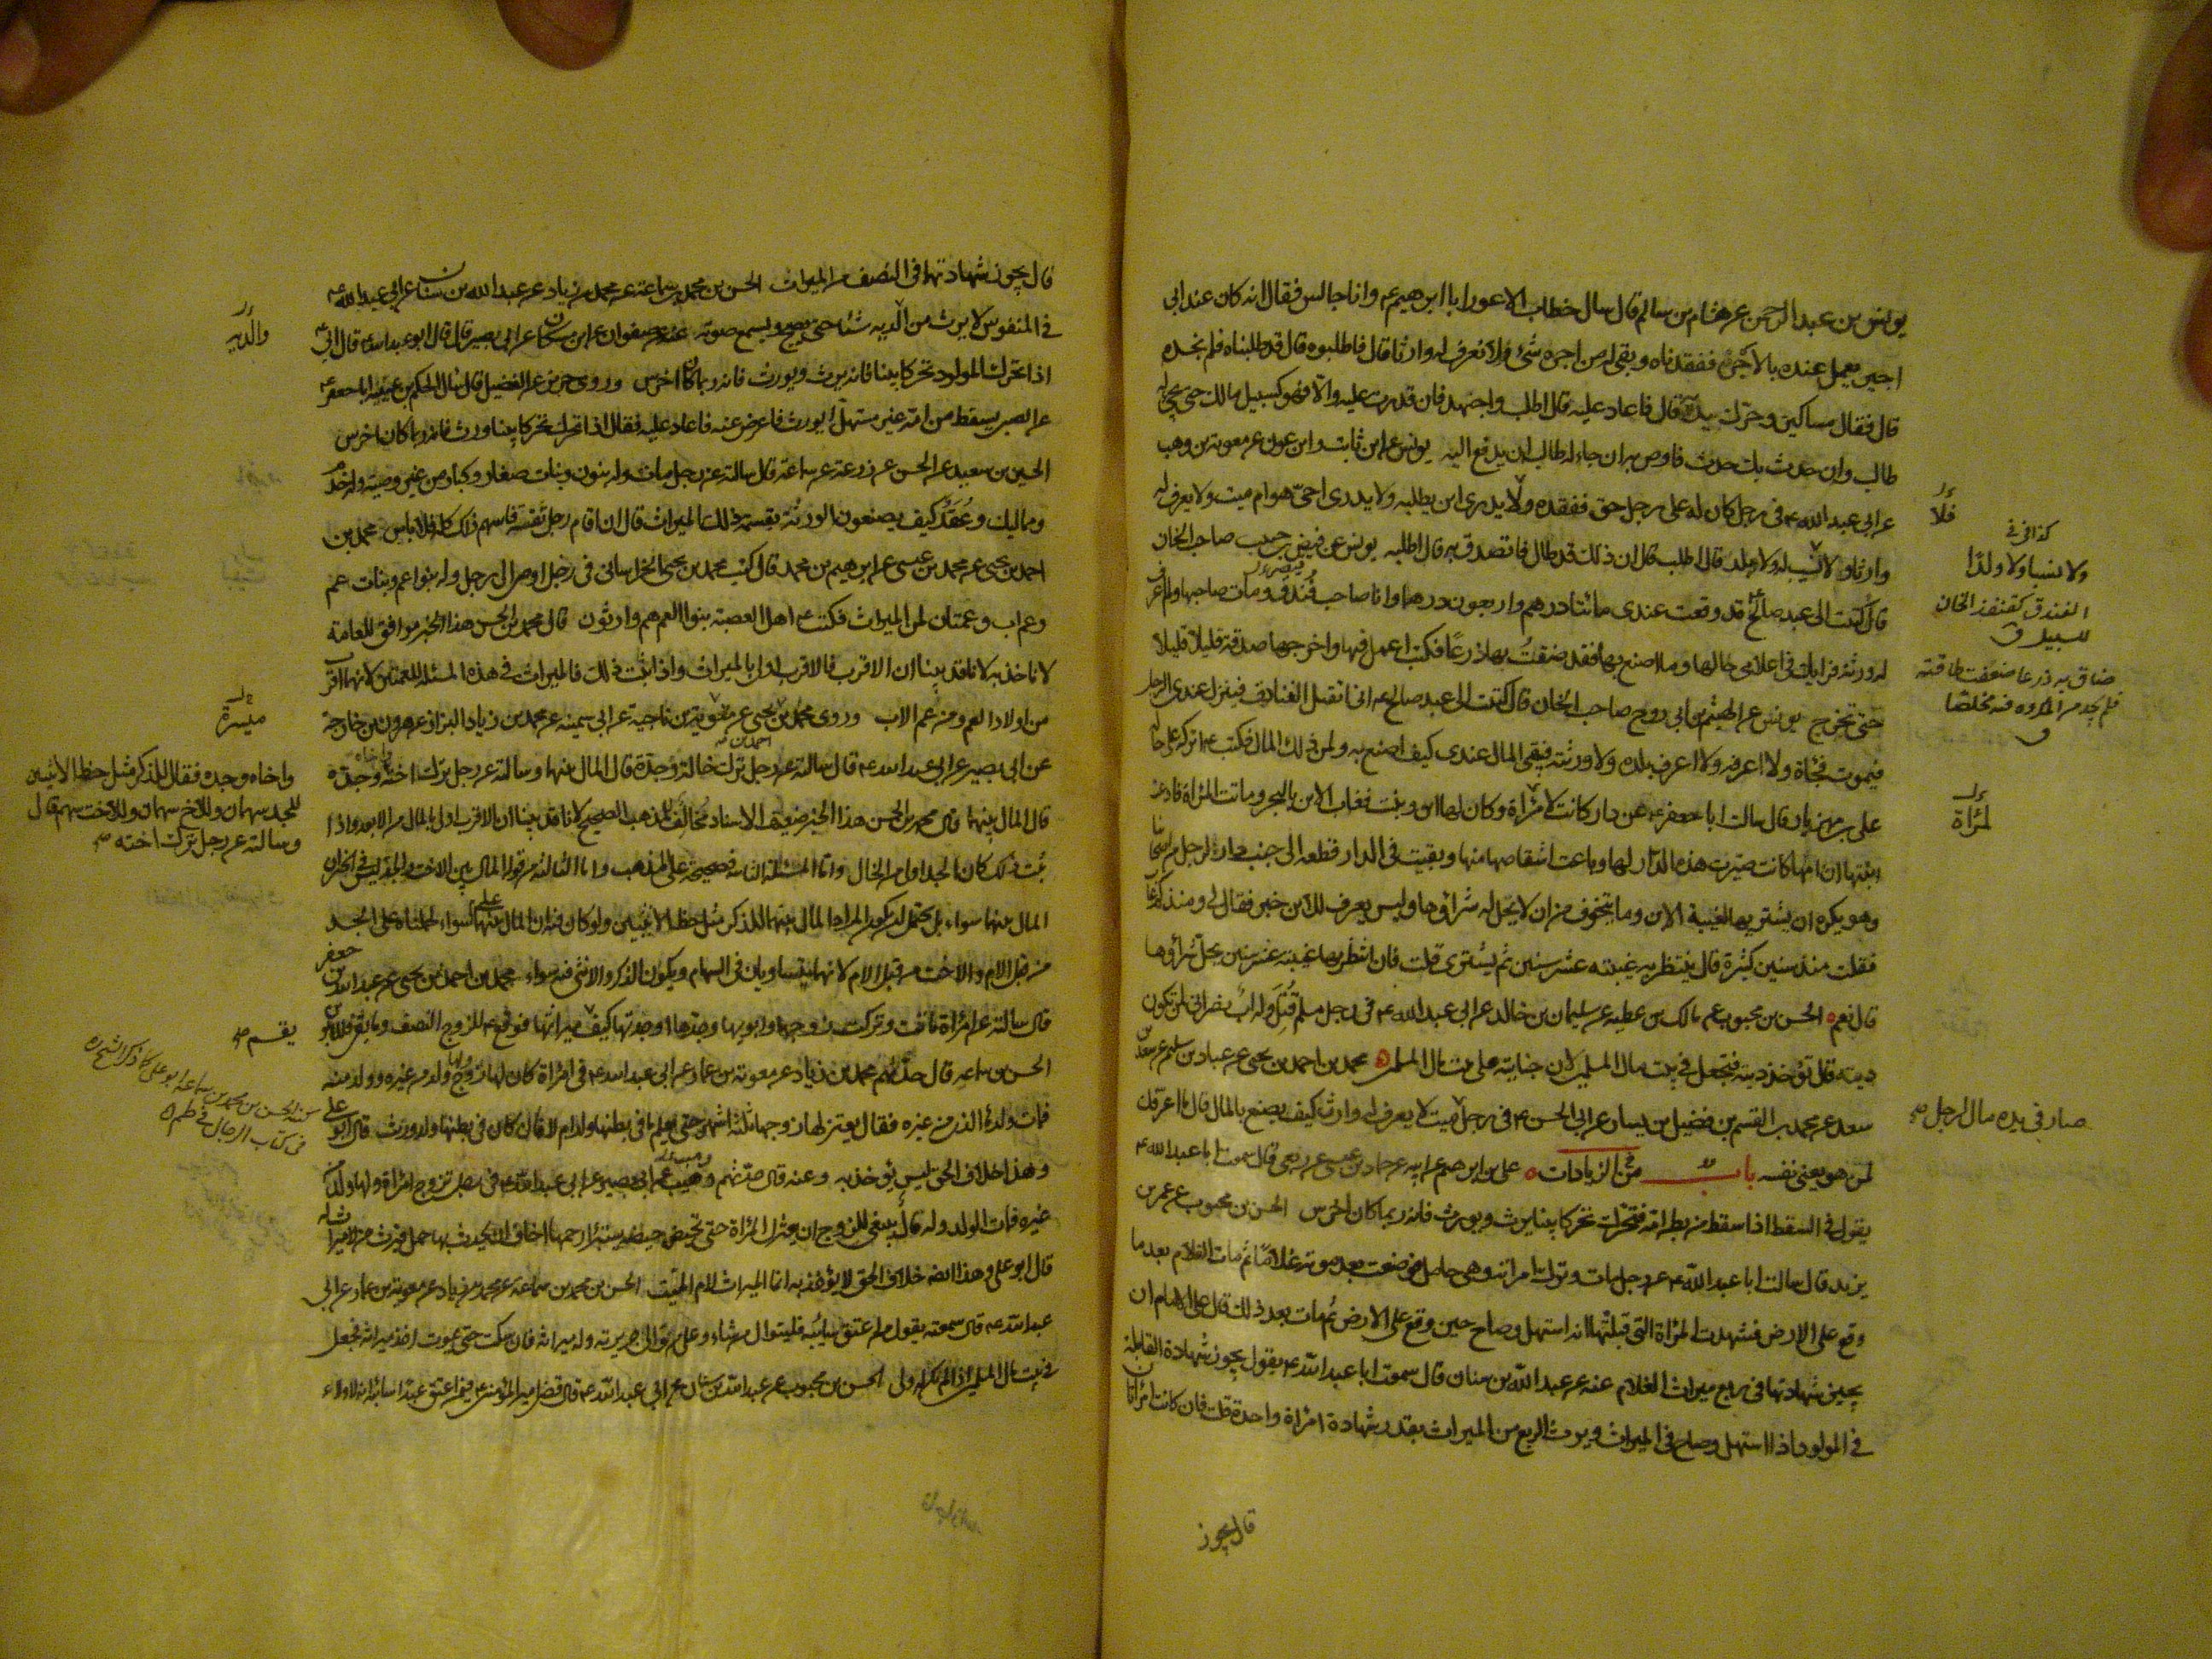 يونس بن عبد الرحمن عن هشام بن سالم قال سال خطاب الاعور ابا ابرهيم ع وانا جالس فقال انه كان عند ابي
اجير يعمل عنده بالاجرة ففقدناه وبقي له من اجره شئ ولا نعرف له وارثا قال فاطلبوه قال قد طلبناه فلم نجده
قال فقال مساكين وحرك يديه قال فاعاد عليه قال اطلب واجهد فان قدرت عليه والا فهو كسبيل مالك حتى يجئ له
طالب وان حدث بك حدث فاوص به ان جاء له طالب ان يدفع اليه يونس عن ابن ثابت وابن عون عن معوية بن وهب
عن ابي عبد الله ع في رجل كان له على رجل حق ففقده ولا يدري اين يطلبه ولا يدري احي هو ام ميت ولا يعرف له
وارثا ولا نسب له ولا بلد قال اطلب قال ان ذلك قد طال فاتصدق به قال اطلبه يونس عن فيض بن حبيب صاحب الخان
قال كتبت الى عبد صالح ع قد وقعت عندي مائتا درهم واربعون درهما وانا صاحب فندق ومات صاحبها ولم اعرف
له ورثة فرايك في اعلامي حالها وما اصنع بها فقد ضقت بها ذرعا فكتب اعمل فيها واخرجها صدقة قليلا قليلا
حتى تخرج يونس عن الهيثم بن ابي روح صاحب الخان قال كتبت الى عبد صالح ع اني اتقبل الفنادق فينزل عندي الرجل
فيموت فجأة ولا اعرفه ولا اعرف بلده ولا ورثته فيبقى المال عندي كيف اصنع به ولمن ذلك المال فكتب ع اتركه على حاله
علي بن مهزيار قال سالت ابا جعفر ع عن دار كانت لامرأة وكان لها ابن وبنت فغاب الابن بالبحر وماتت المرأة فادعت
ابنتها ان امها كانت صيرت هذه الدار لها وباعت اشقاصا منها وبقيت في الدار قطعة الى جنب دار لرجل من اصحابنا
وهو يكره ان يشتريها لغيبة الابن وما يتخوف من ان لا يحل له شراؤها وليس يعرف للابن خبر فقال لي ومنذ كم غاب
فقلت منذ سنين كثيرة قال ينتظر به غيبته عشر سنين ثم يشترى قلت فان انتظر بها غيبته عشر سنين يحل شراؤها
قال نعم الحسن بن محبوب عن مالك بن عطية عن سليمان بن خالد عن ابي عبد الله ع في رجل مسلم قتل وله اب نصراني لمن تكون
ديته قال تؤخذ ديته فتجعل في بيت مال المسلمين لان جنايته على بيت مال المسلمين محمد بن احمد بن يحيى عن عباد بن سليمن عن سعد بن
سعد عن محمد بن القسم بن فضيل بن يسار عن ابي الحسن ع في رجل ميت لا يعرف له وارث كيف يصنع بالمال قال ما اعرفك
لمن هو يعني نفسه باب من الزيادات علي بن ابرهيم عن ابيه عن حماد بن عيسى عن ربعي قال سمعت ابا عبد الله ع
يقول في السقط اذا سقط من بطن امه فتحرك تحركا بينا يرث ويورث فانه ربما كان اخرس الحسن بن محبوب عن عمر بن
يزيد قال سالت ابا عبد الله ع عن رجل مات وترك امراته وهي حامل فوضعت بعد موته غلاما ثم مات الغلام بعد ما
وقع على الارض فشهدت المرأة التي قبلتها انه استهل وصاح حين وقع على الارض ثم مات بعد ذلك قال على الامام ان
يجيز شهادتها في ربع ميراث الغلام عنه عن عبد الله بن سنان قال سمعت ابا عبد الله ع يقول يجوز شهادة القابلة
في المولود اذا استهل وصاح في الميراث ويرث الربع من الميراث بقدر شهادة امرأة واحدة قلت فان كانت امراتان
قال يجوز
فلا
كذا في في
ولا نسبا ولا ولدا
الفندق كقنفذ الخان
للسبيل ق
ضاق به ذرعا ضعفت طاقته
فلم يجد من المكروه فيه مخلصا
ق
لمرأة
صار في يده مال لرجل صح
قال يجوز شهادتها في النصف من الميراث الحسن بن محمد بن سماعة عن محمد بن زياد عن عبد الله بن سنان عن ابي عبد الله ع
في المنفوس لا يرث من الدية شيئا حتى يصيح ويسمع صوته عنه عن صفوان عن ابن مسكان عن ابي بصير قال قال ابو عبد الله ع قال ابي ع
اذا تحرك المولود تحركا بينا فانه يرث ويورث فانه ربما كان اخرس وروى حريز عن الفضيل قال سال الحكم بن عتيبة ابا جعفر ع
عن الصبي يسقط من امه غير مستهل أيورث فاعرض عنه فاعاد عليه فقال اذا تحرك تحركا بينا ورث فانه ربما كان اخرس
الحسين بن سعيد عن الحسن عن زرعة عن سماعة قال سالته عن رجل مات وله بنون وبنات صغار وكبار من غير وصية وله خدم
ومماليك وعقد كيف يصنعون الورثة بقسمة ذلك الميراث قال ان قام رجل ثقة قاسمهم ذلك كله فلا باس محمد بن
احمد بن يحيى عن محمد بن عيسى عن ابرهيم بن محمد قال كتب محمد بن يحيى الخراساني في رجل اوصى الى رجل وله بنو اعم وبنات عم
وعم اب وعمتان لمن الميراث فكتب ع اهل العصبة بنوا العم هم وارثون قال محمد بن الحسن هذا الخبر موافق للعامة
لا ناخذ به لانا قد بينا ان الاقرب فالاقرب اولى بالميراث واذا ثبت ذلك فالميراث في هذه المسئلة للعمتين لانهما اقرب
من اولاد العم ومن عم الاب وروى محمد بن يحيى عن معوية بن ناجية عن ابي سمينة عن محمد بن زياد البزاز عن هرون بن خارجة
عن ابي بصير عن ابي عبد الله ع قال سالته عن رجل ترك خاله وجده قال المال بينهما وسالته عن رجل ترك اخته وجده
قال المال بينهما قال محمد بن الحسن هذا الخبر ضعيف الاسناد مخالف للمذهب الصحيح لانا قد بينا ان الاقرب اولى بالمال من الابعد واذا
ثبت ذلك كان الجد اولى من الخال واما المسئلة الثانية فصحيحة على المذهب واما الثالثة من قوله المال بين الاخت والجد ليس في الخبر ان
المال بينهما سواء بل يحتمل ان يكون المراد المال بينهما للذكر مثل حظ الانثيين ولو كان فيه ان المال بينهما سواء لحملناه على الجد
من قبل الام والاخت من قبل الام لانهما يتساويان في السهام ويكون الذكر والانثى فيه سواء محمد بن احمد بن يحيى عن عبد الله بن جعفر
قال سالته عن امرأة ماتت وتركت زوجها وابويها وجدها او جدتها كيف يقسم ميراثها فوقع ع للزوج النصف وما بقي فللابوين
الحسن بن سماعة قال حدثهم محمد بن زياد عن معوية بن عمار عن ابي عبد الله ع في امرأة كان لها زوج ولها ولد من غيره وولد منه
فمات ولدها الذي من غيره فقال يعتزلها زوجها ثلثة اشهر حتى يعلم ما في بطنها ولد ام لا فان كان في بطنها ولد ورث قال ابو علي
وهذا خلاف الحق ليس يؤخذ به وعنه قال حدثهم وهيب عن ابي بصير عن ابي عبد الله ع في رجل تزوج امرأة ولها ولد من
غيره فمات الولد وله مال قال ينبغي للزوج ان يعتزل المرأة حتى تحيض حيضة يستبرأ رحمها اخاف ان يحدث بها حمل فيرث من لا ميراث له
قال ابو علي وهذا ايضا خلاف الحق لا يؤخذ به انما الميراث لام الميت الحسن بن محمد بن سماعة عن محمد بن زياد عن معوية بن عمار عن ابي
عبد الله ع قال سمعته يقول من اعتق سائبة فليتوال من شاء وعلى من توالى جريرته وله ميراثه فان سكت حتى يموت اخذ ميراثه فجعل
في بيت مال المسلمين اذا لم يكن له ولي الحسن بن محبوب عن عبد الله بن سنان عن ابي عبد الله ع قال قضى امير المؤمنين ع فيمن اعتق عبدا سائبة انه لا ولاء
والدية
ميسرة
واخاه وجده فقال للذكر مثل حظ الانثيين
للجد سهمان وللاخ سهمان وللاخت سهم قال
وسالته عن رجل ترك اخته صح
يقسم صح
كنية الحسن بن محمد بن سماعة ابو علي كما ذكر الشيخ ره
في كتاب الرجال في ظم